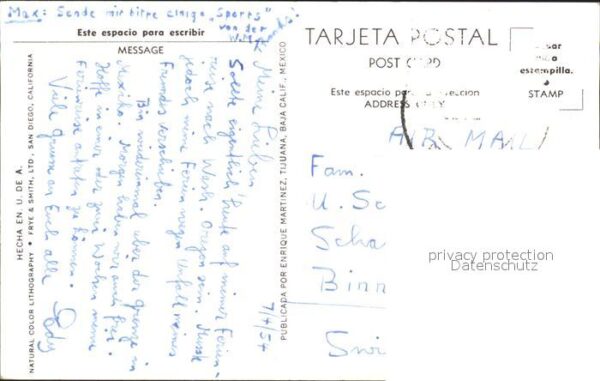 Max: Sende mir bitte einige „Sports"
von der
W.M.
Este espacio para escribir
MESSAGE
7/4/54
Meine Lieben
Sollte eigentlich heute auf meiner Ferien-
reise nach Wash. Oregon sein. Musste
jedoch meine Ferien wegen Unfall meines
Freundes verschieben.
Bin wiedereinmal über der Grenze in
Mexiko. Morgen haben wir auch frei.
Hoffe in einer oder zwei Wochen meine
Ferienreise antreten zu können.
Viele Grüsse an Euch alle Edy
HECHA EN U. DE A.
NATURAL COLOR LITHOGRAPHY • FRYE & SMITH, LTD., SAN DIEGO, CALIFORNIA
PUBLICADA POR ENRIQUE MARTINEZ, TIJUANA, BAJA CALIF., MEXICO
TARJETA POSTAL
POST CARD
Este espacio para dirección
ADDRESS ONLY
estampilla.
STAMP
AIR MAIL
Fam.
U. Sc
Scha
Binn
Swi
privacy protection
Datenschutz